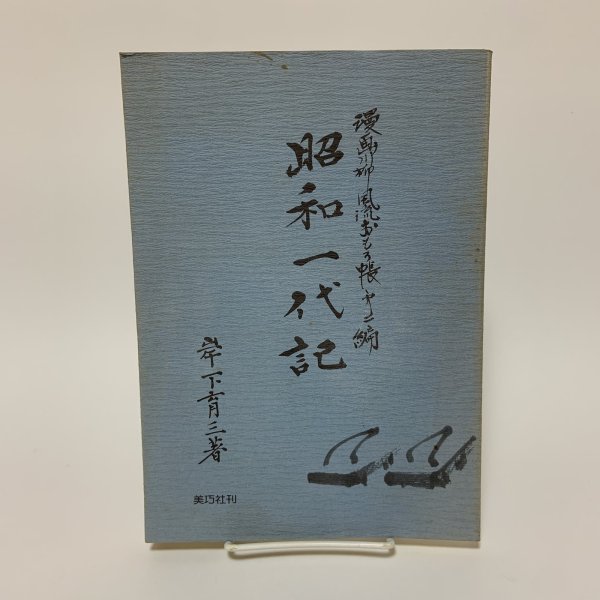 漫画川柳風流おもろ帳第二編
昭和一代記
岸下育三著
美巧社刊